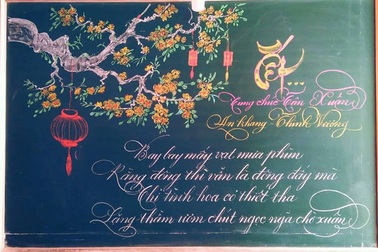 Tết...
Cung chúc Tân Xuân
An Khang Thịnh Vượng
Bay bay mấy vạt mưa phùn
Rặng đông thì vẫn là đông đấy mà
Chị trinh hoa cỏ thiết tha
Lặng thầm ươm chút ngọc ngà cho xuân